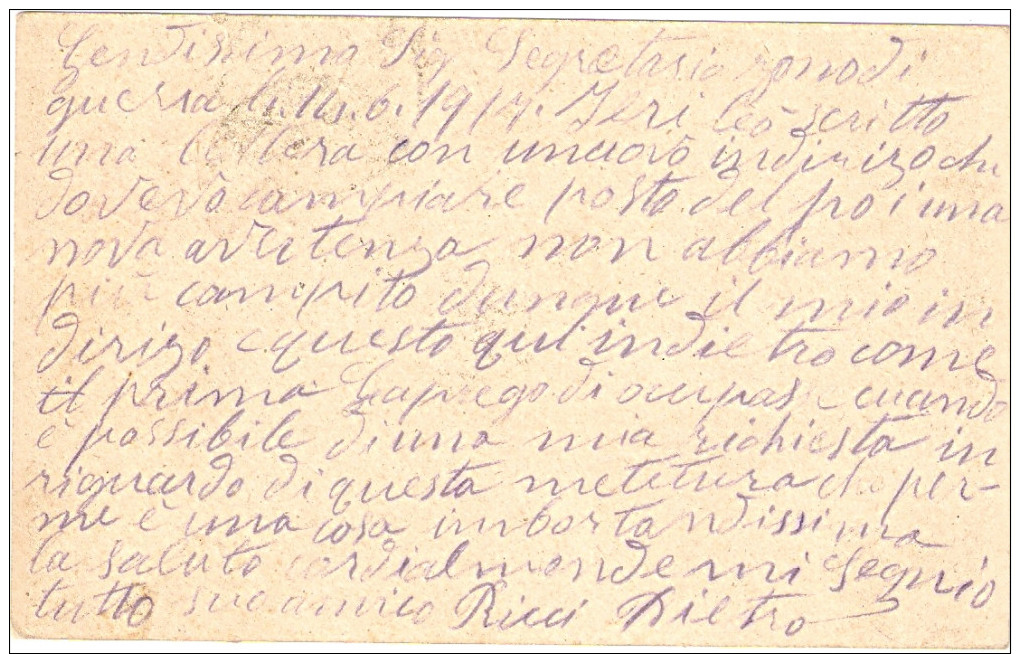 Gendissimo Sig Segretario zona di
guerra li. 14. 6. 1917. Ieri leò scritto
una lettera con unuovo indirizo che
dovevo campiare posto del poi una
nova avertenza non abbiamo
più campito dunque il mio in
dirizo e questo qui indietro come
il prima La prego di ocuparsi cuando
è possibile di una mia richiesta in
riguardo di questa che per-
me è una cosa imbortandissima
la saluto cordialmonde mi segnio
tutto suo amico Ricci Pietro